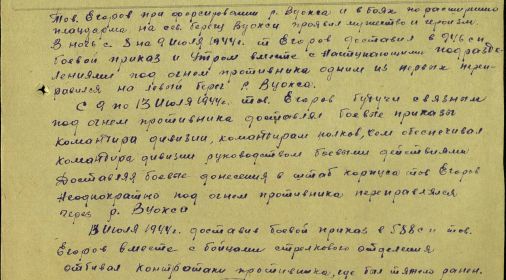 Тов. Егоров при форсировании р. Вуокса и в боях по расширению
плацдарма на сев. берегу Вуокси проявил мужество и героизм.
В ночь с 8 на 9 Июля 1944г. т. Егоров доставил в 946 сп
боевой приказ и Утром вместе с Наступающими подразде-
лениями под огнем противника одним из первых пере-
правился на левой берег р. Вуокса.
С 9 по 13 Июля 1944г. тов. Егоров будучи связным
под огнем противника доставлял боевые приказы
Командира дивизии, командирам полков, чем обеспечивал
Командира дивизии руководством боевыми действиями
Доставляя боевые донесения в штаб корпуса тов Егоров
Неоднократно под огнем противника переправлялся
через р. Вуокси
13 Июля 1944г. доставив боевой приказ в 588 с п тов.
Егоров вместе с бойцами стрелкового отделения
отбивал контратаки противника, где был тяжело ранен.